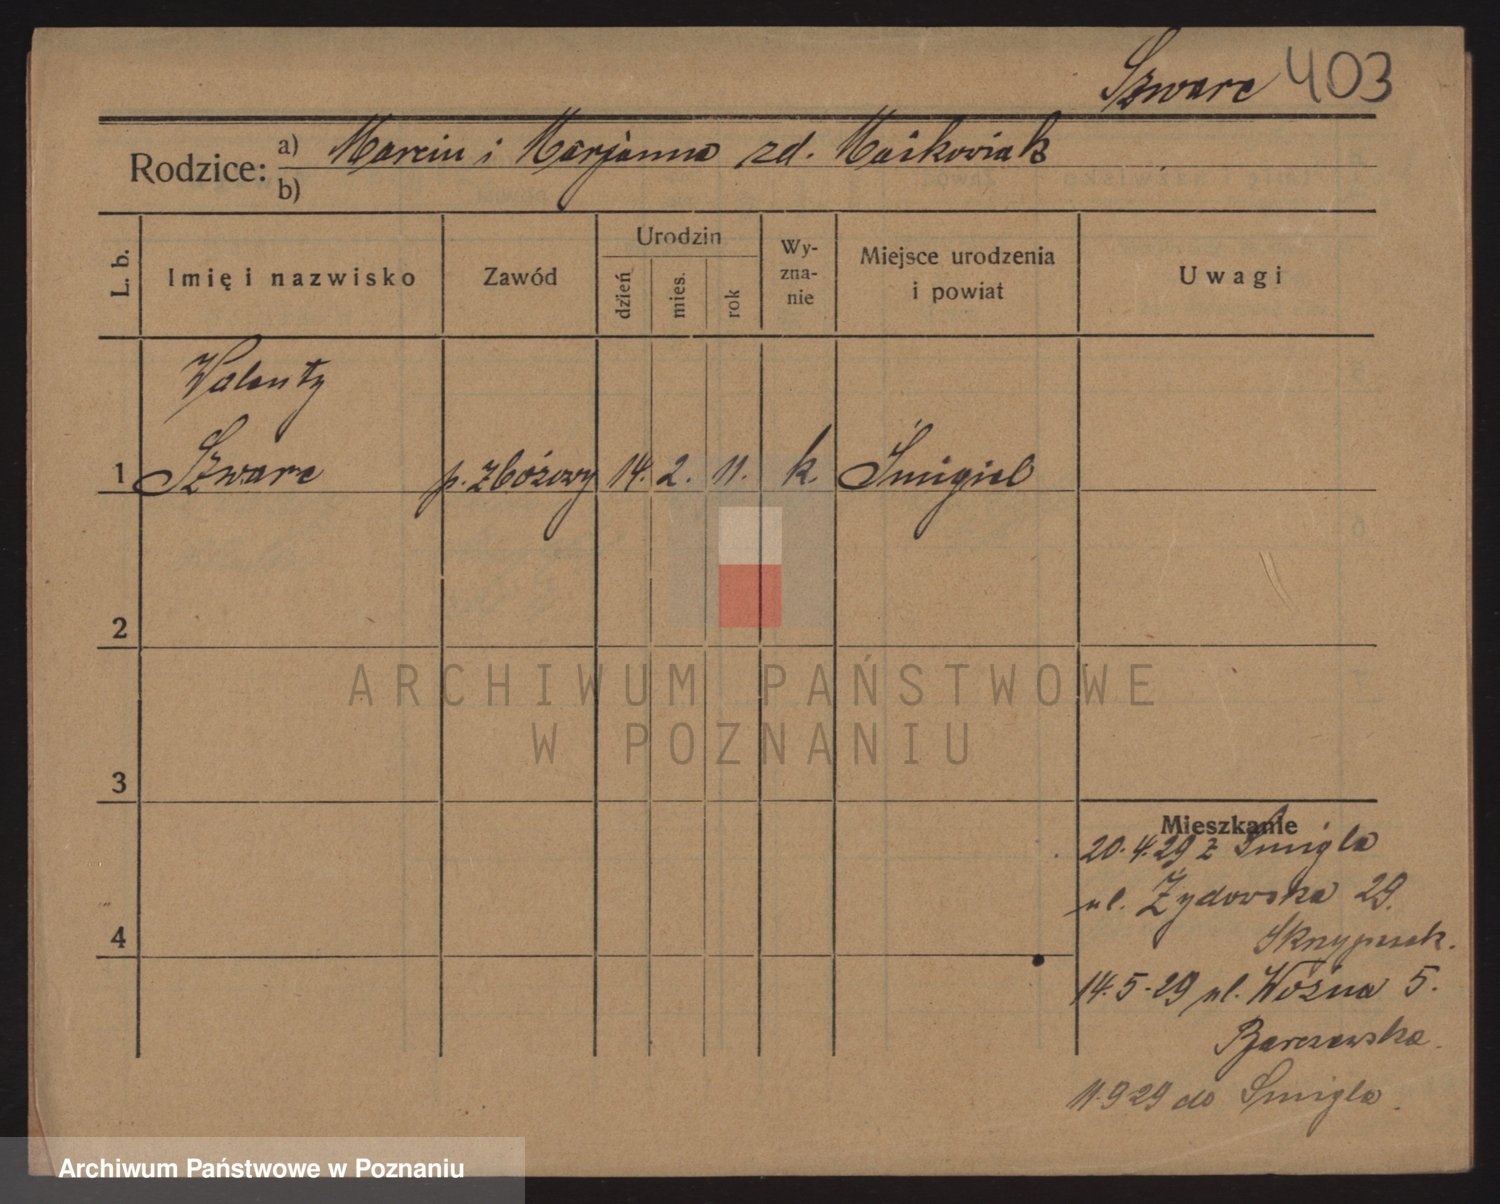 Szwarc 403
Rodzice: a) Marcin i Marjanna zd. Maśkowiak
b)
L. b. Imię i nazwisko Zawód Urodzin dzień mies. rok Wy-zna-nie Miejsce urodzenia i powiat Uwagi
Walenty
1 Szwarc p. zbożowy 14. 2. 11. k. Śmigiel
2
ARCHIWUM PAŃSTWOWE
W POZNANIU
3
Mieszkanie
20.4.29 z Śmigla
ul. Żydowska 29.
4
14.5.29 ul. Woźna 5.
Barczewska.
11.9 29 do Śmigla.
Archiwum Państwowe w Poznaniu